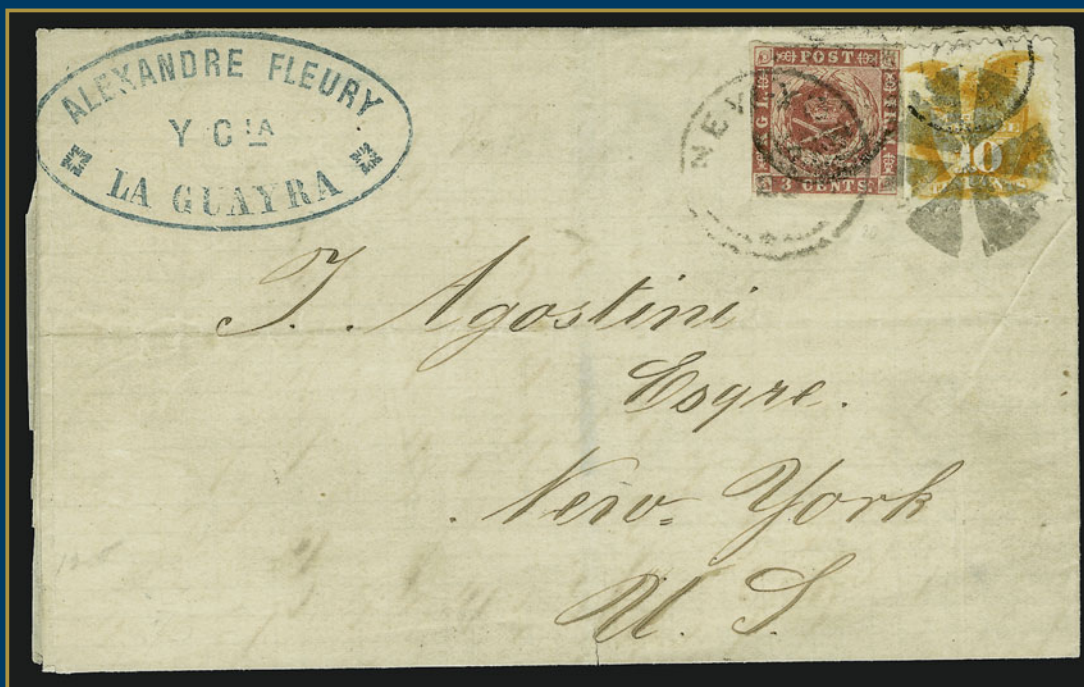 ALEXANDRE FLEURY
Y CIA
LA GUAYRA
POST
3 CENTS.
10
T. Agostini
Esqre.
New York
U. S.